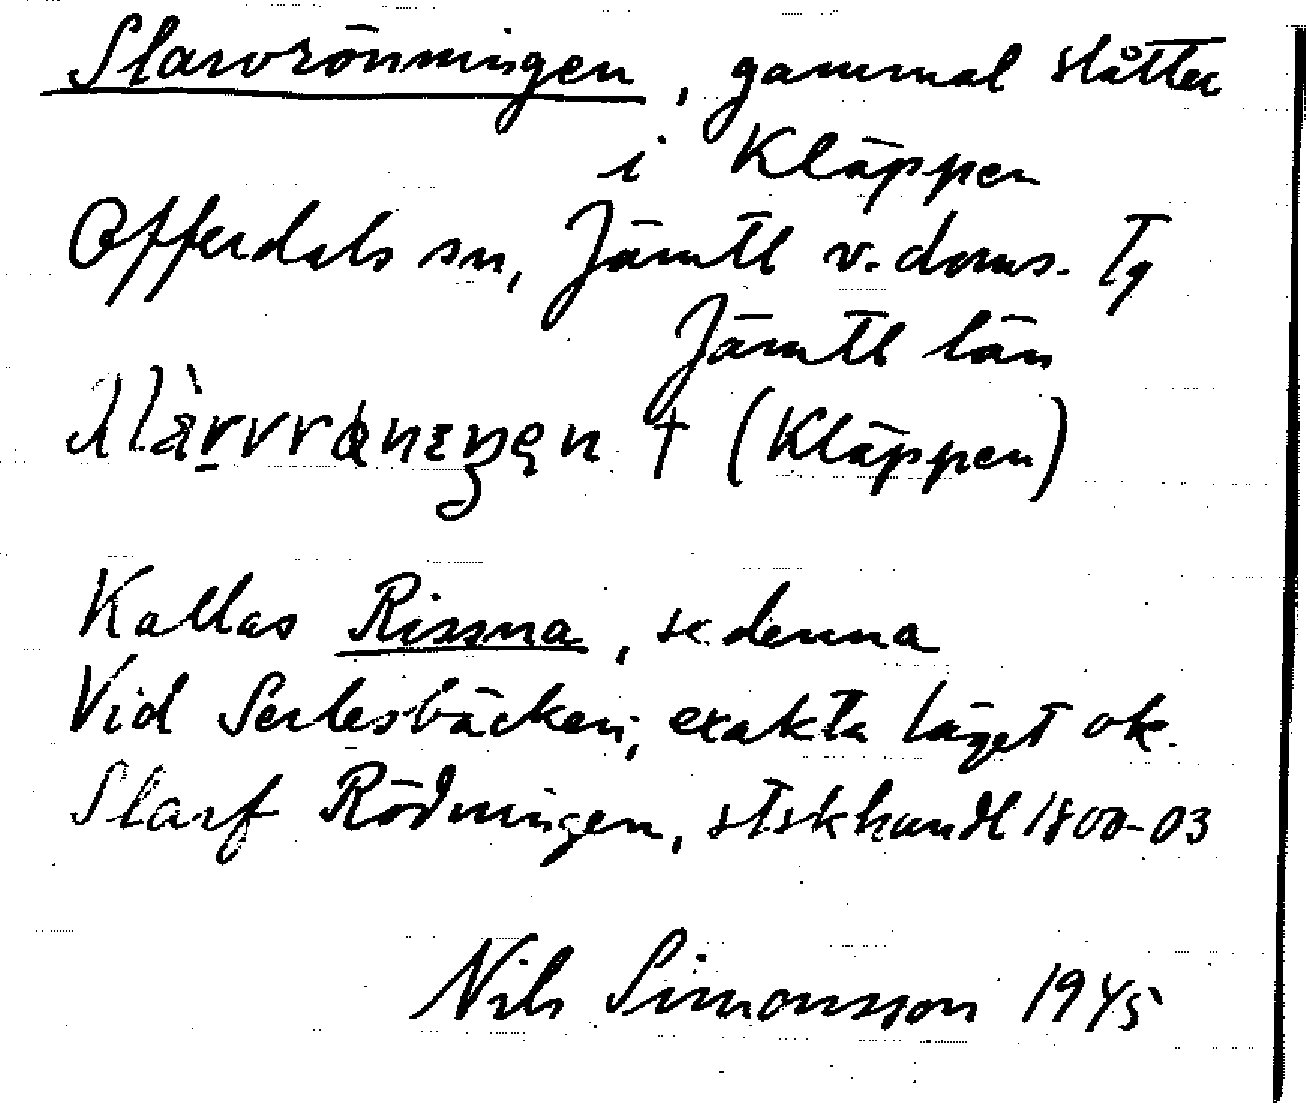 Slarvrönningen, gammal slåtter
i Kläppen
Offerdals sn, Jämtl v. doms. Tg
Jämtl län
(Kläppen)
Kallas Rissna, se denna
Vid Serlesbäcken, exakta läget ok.
Slarf Rödningen, stskhandl 1800-03
Nils Simonsson 1945